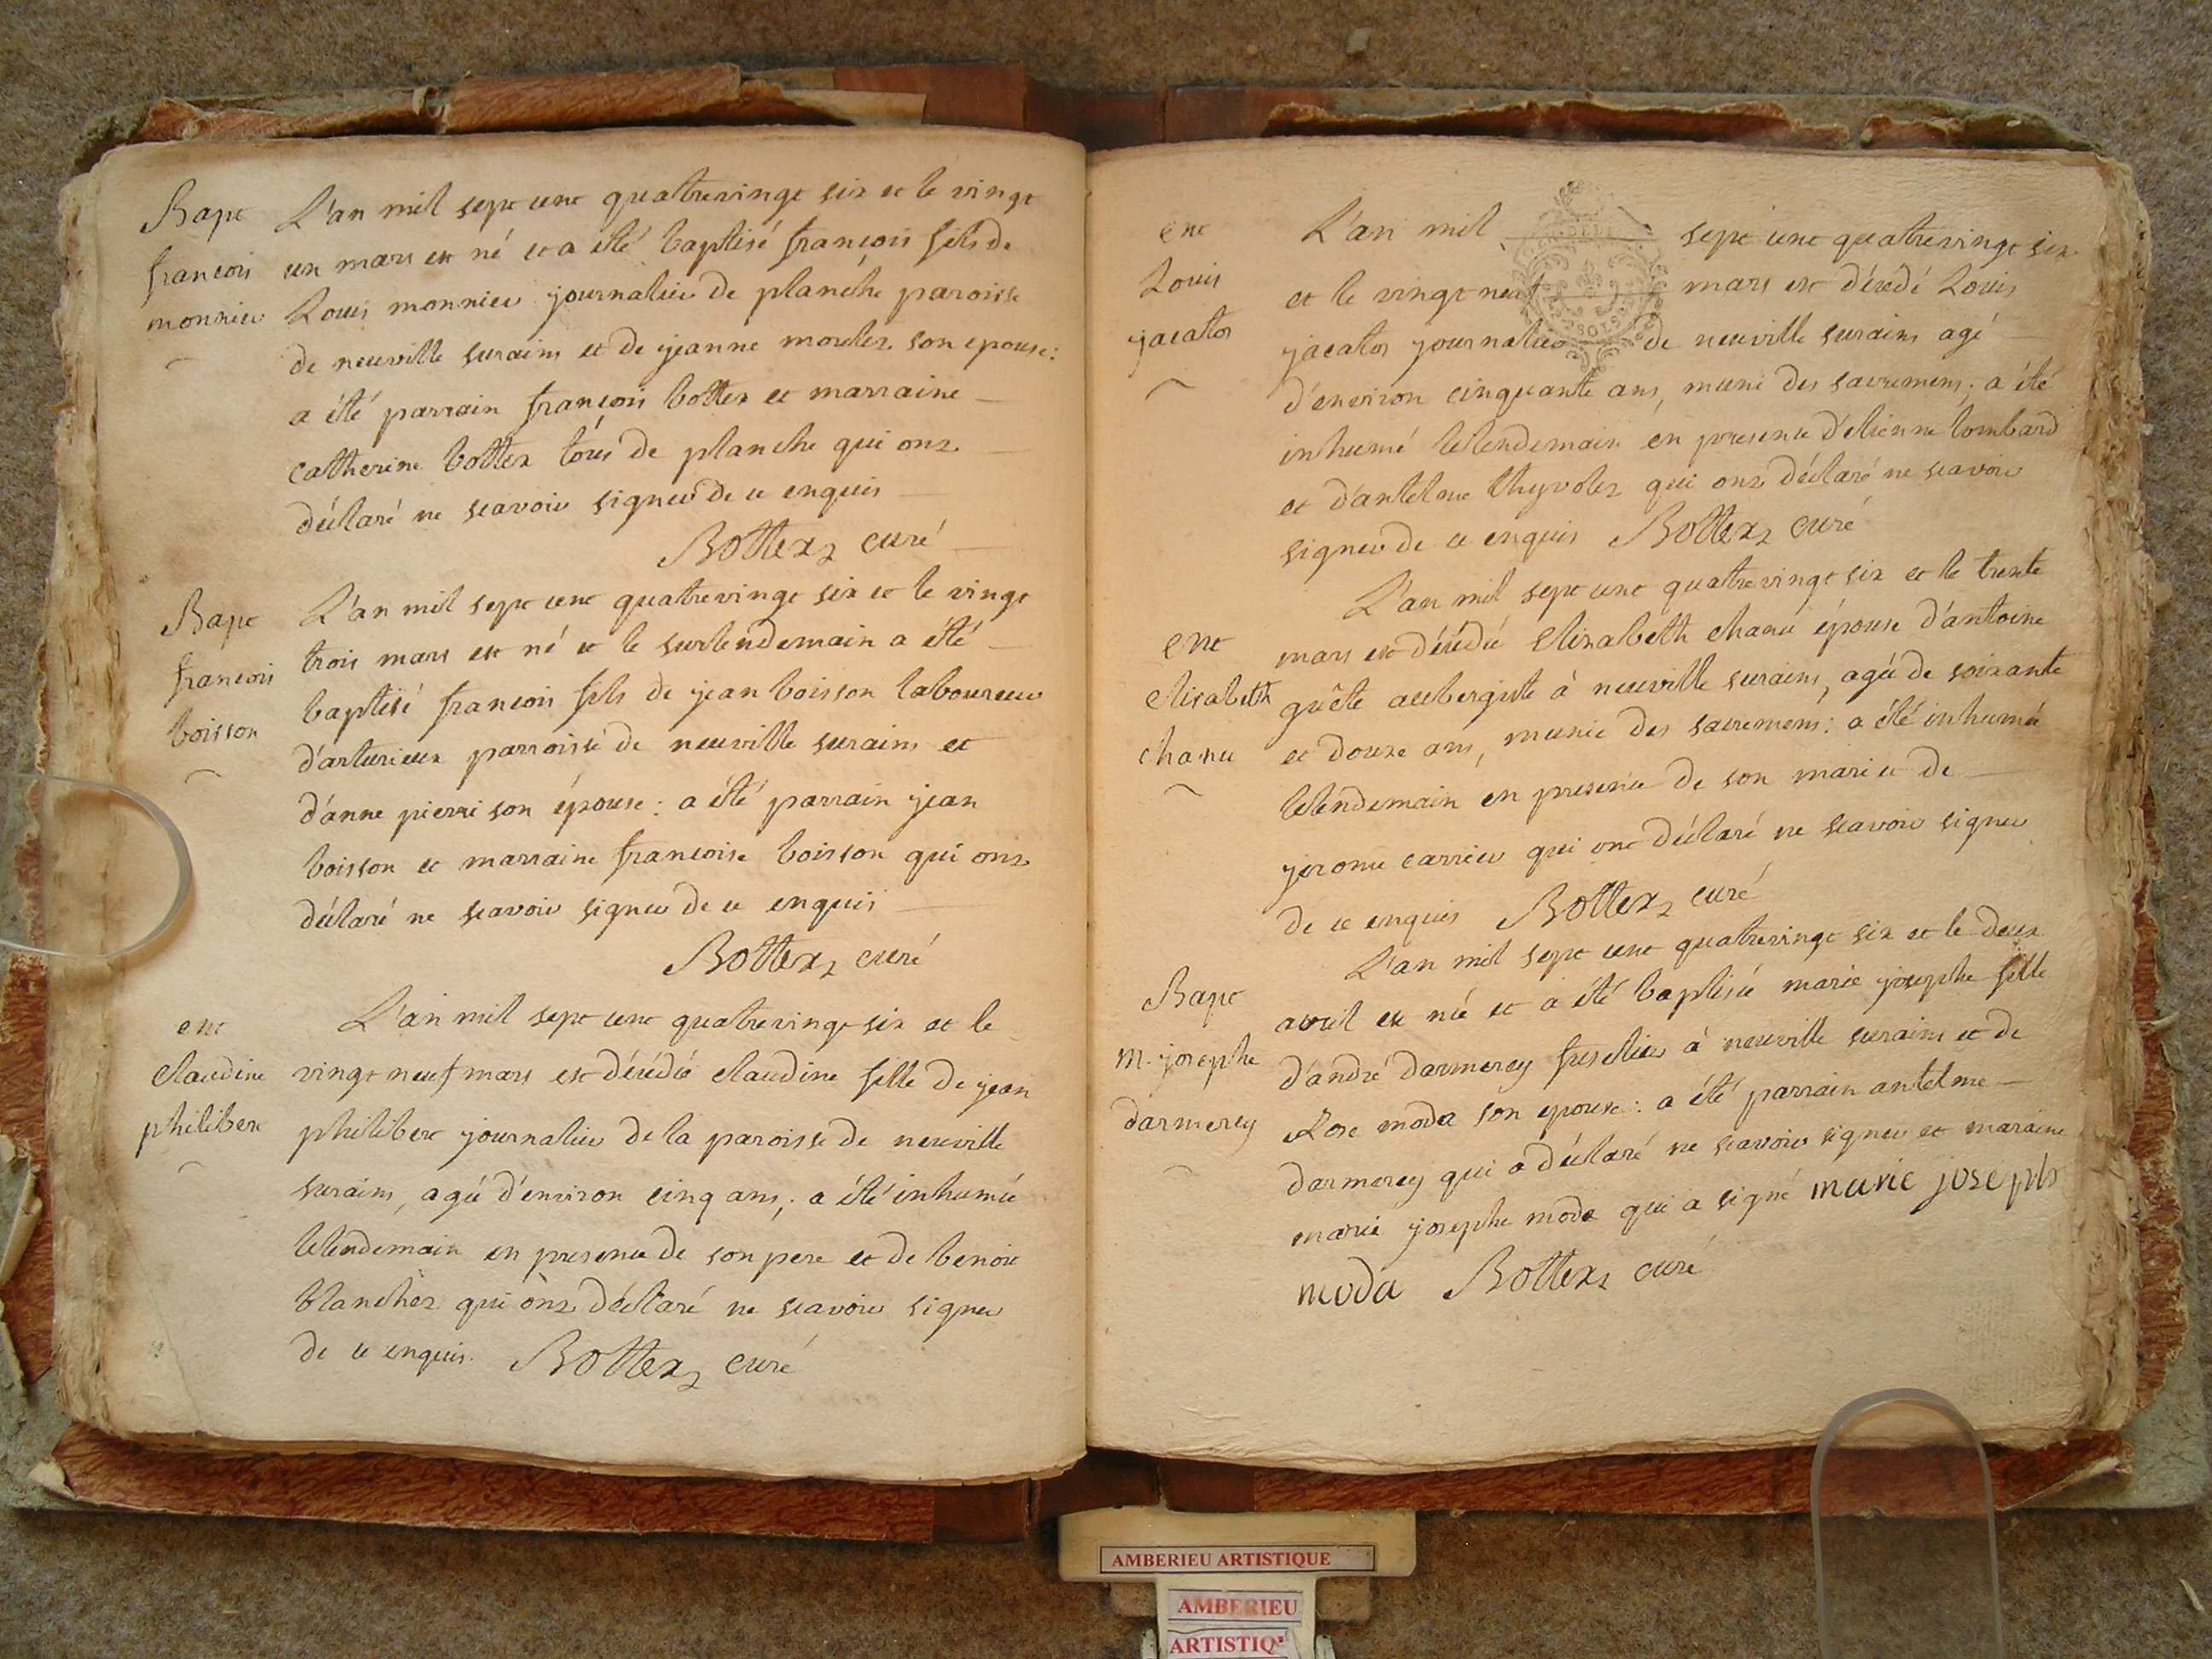 Bapt
francois
monnier
L'an mil sept cent quatrevingt six et le vingt
un mars est né et a été baptisé françois fils de
Louis monnier journalier de planche paroisse
de neuville surains et de jeanne morelex son epouse:
a été parrain françois bottex et marraine
catherine bottex tous de planche qui ont
déclaré ne scavoir signer de ce enquis
Bottex, curé
Bapt
francois
boisson
L'an mil sept cent quatrevingt six et le vingt
trois mars est né et le surlendemain a été
baptisé francois fils de jean boisson laboureur
d'arturieux parroisse de neuville surains et
d'anne pierre son épouse: a été parrain jean
boisson et marraine francoise boisson qui ont
déclaré ne scavoir signer de ce enquis
Bottex, curé
ent
claudine
philibert
L'an mil sept cent quatrevingt six et le
vingt neuf mars est décédée claudine fille de jean
philibert journalier de la paroisse de neuville
surains, agée d'environ cinq ans; a été inhumée
lelendemain en presence de son pere et de benoit
blanchet qui ont déclaré ne scavoir signer
de ce enquis. Bottex, curé
ent
Louis
jacatos
L'an mil sept cent quatrevingt six
et le vingt neuf mars est décédé Louis
jacatos journalier de neuville surains agé
d'environ cinquante ans, muni des sacremens; a été
inhumé lelendemain en presence d'etienne lombard
et d'antelme thyvolet qui ont déclaré ne scavoir
signer de ce enquis Bottex, curé
ent
elisabeth
chanu
L'an mil sept cent quatrevingt six et le trente
mars est décédée Elisabeth chanu épouse d'antoine
guête aubergiste à neuville surains, agée de soixante
et douze ans, munie des sacremens: a été inhumée
lelendemain en presence de son mari et de
jeronie carrier qui ont déclaré ne scavoir signer
de ce enquis Bottex, curé
Bapt
m. josephe
darmerey
L'an mil sept cent quatrevingt six et le deux
avril est née et a été baptisée marie josephe fille
d'andré darmerey fuselier à neuville surains et de
Rose moda son epouse: a été parrain antelme
darmerey qui a déclaré ne scavoir signer et maraine
marie josephe moda qui a signé marie joseph
moda Bottex, curé
AMBERIEU ARTISTIQUE
AMBERIEU
ARTISTIQ